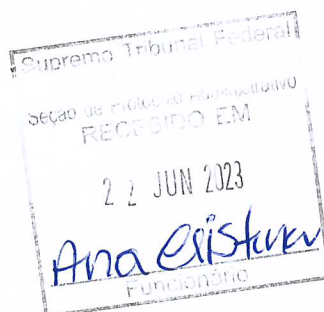 Supremo Tribunal Federal
Seção de Protocolo Administrativo
RECEBIDO EM
22 JUN 2023
Ana Cristina
Funcionário